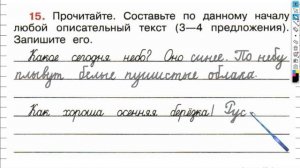 15. Прочитайте. Составьте по данному началу
любой описательный текст (3—4 предложения).
Запишите его.
Какое сегодня небо? Оно синее. По небу
плывут белые пушистые облака.
Как хороша осенняя берёзка! Гус